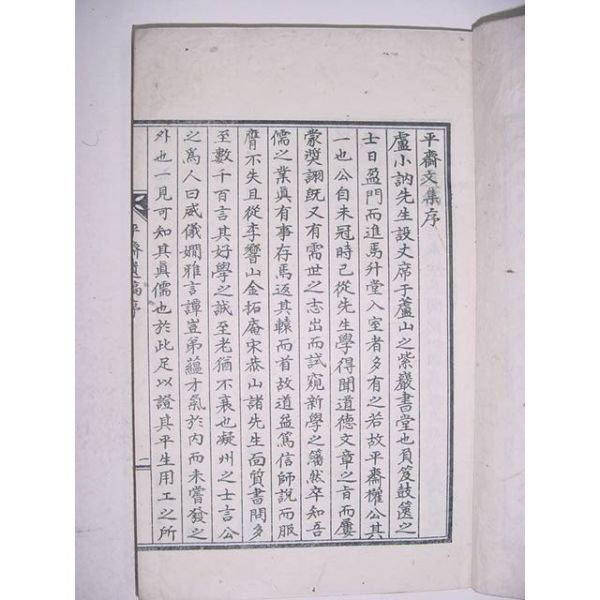 平齋文集序
盧小訥先生設丈席于蘆山之紫巖書堂也負笈鼓篋之
士日盈門而進焉升堂入室者多有之若故平齋權公其
一也公自未冠時已從先生學得聞道德文章之旨而屢
蒙奬詡旣又有需世之志出而試窺新學之藩然卒知吾
儒之業眞有事存焉返其轅而首故道益篤信師說而服
膺不失且從李響山金拓庵宋恭山諸先生面質書問多
至數千百言其好學之誠至老猶不衰也凝州之士言公
之爲人曰威儀嫺雅言譚豈弟蘊才氣於內而未嘗發之
外也一見可知其眞儒也於此足以證其平生用工之所
平齋遺稿序
一